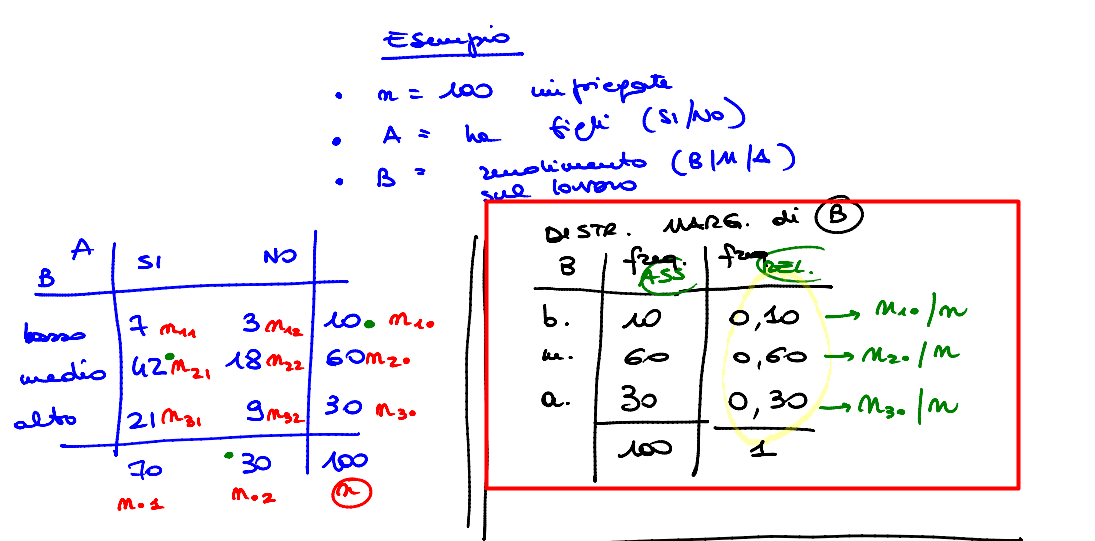 Esempio
• n = 100 impiegate
• A = ha figli (SI/NO)
• B = rendimento (B/M/A)
sul lavoro
A SI NO
B
basso 7 n11 3 n12 10 n1•
medio 42 n21 18 n22 60 n2•
alto 21 n31 9 n32 30 n3•
70 30 100
n•1 n•2 n
DISTR. MARG. di B
B freq. ASS freq REL.
b. 10 0,10 → n1•/n
m. 60 0,60 → n2•/n
a. 30 0,30 → n3•/n
100 1